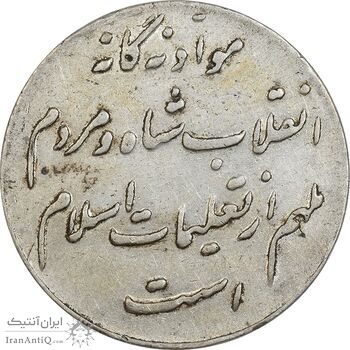 مواد نه گانه
انقلاب شاه و مردم
ملهم از تعلیمات اسلام
است
ایران آنتیک
IranAntiQ.com